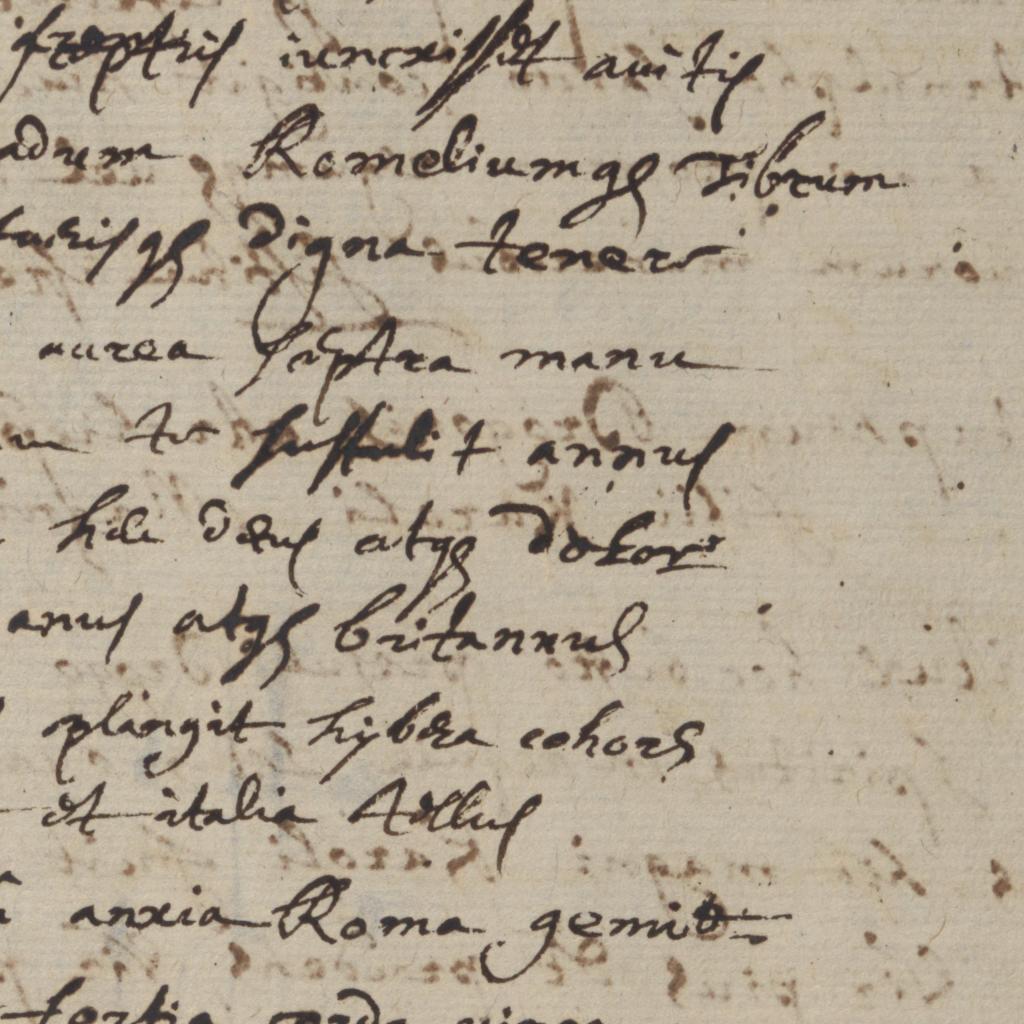 sceptris iunxisset auitis
adrum Romeliumqȝ Tibrum
qȝ digna tenere
aurea sceptra manu
te sustulit annus
hei deus atqȝ dolor
anus atqȝ britannus
plangit hybera cohors
et italia tellus
anxia Roma gemit
fortia